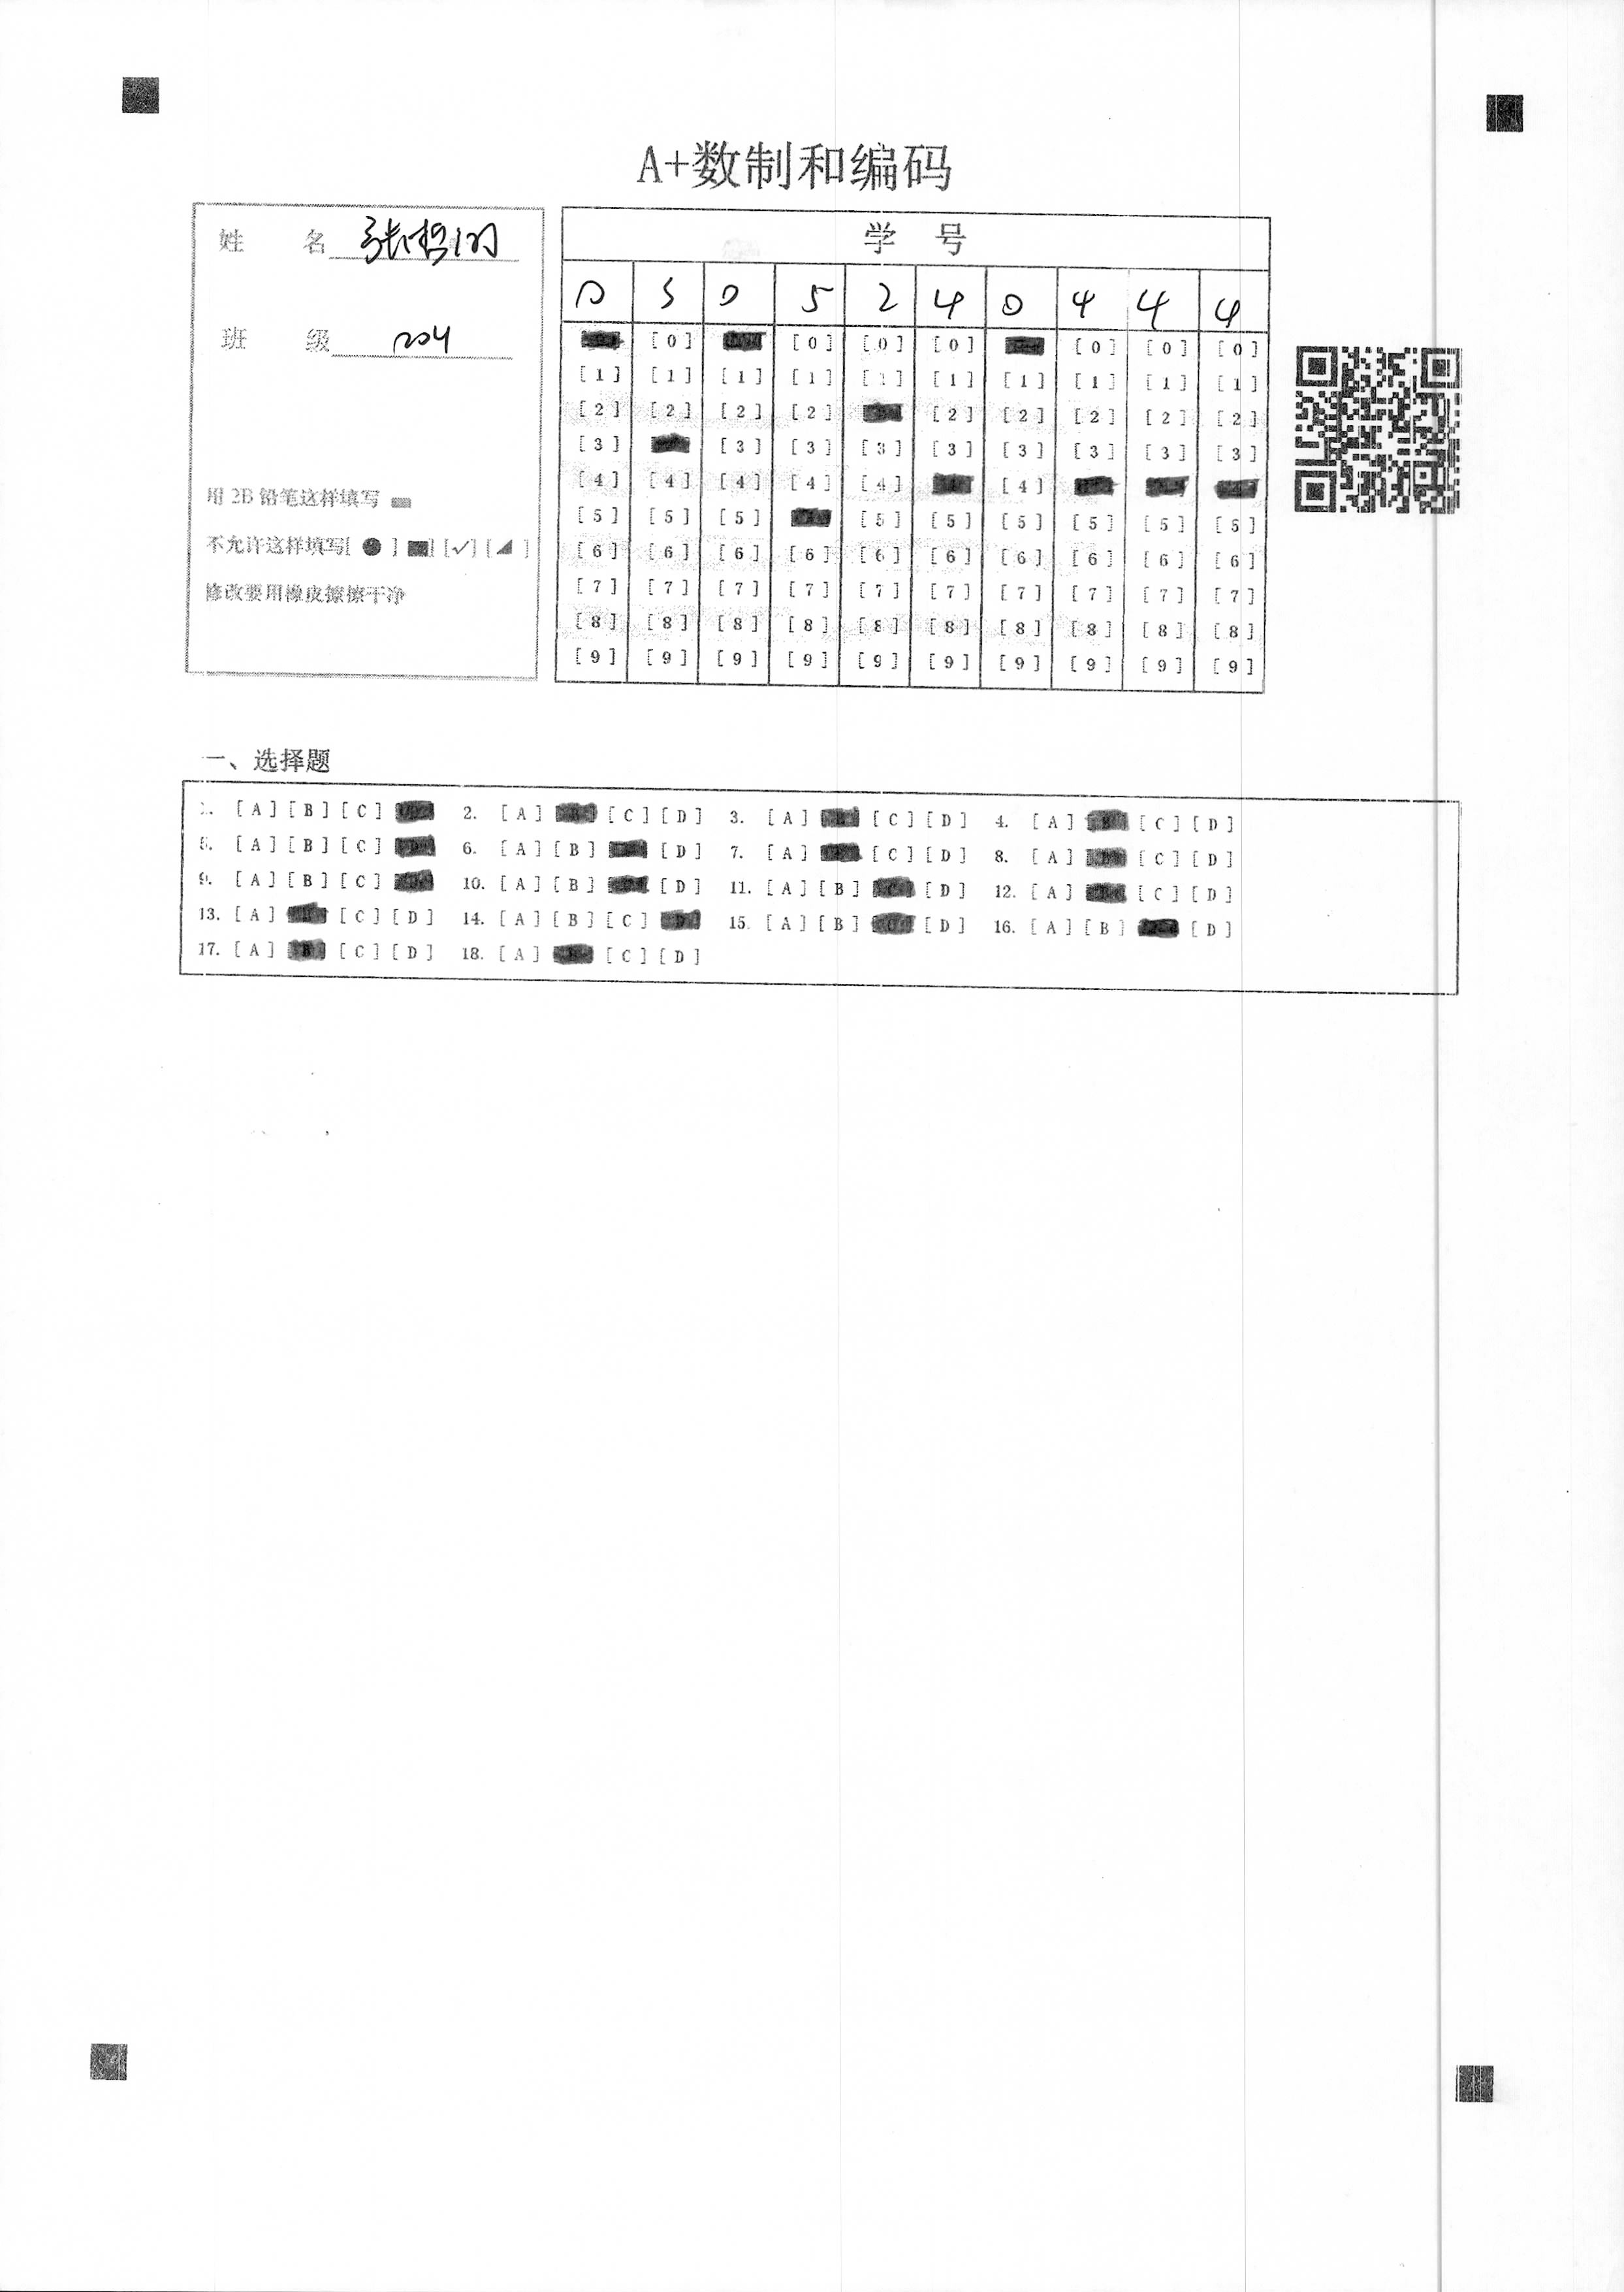 A+数制和编码
姓 名
班 级 204
用 2B 铅笔这样填写
不允许这样填写[ ● ] [■] [✓] [◢ ]
修改要用橡皮擦擦干净
学 号
0 3 0 5 2 4 0 4 4 4
[0] [0] [0] [0] [0] [0] [0]
[1] [1] [1] [1] [1] [1] [1] [1] [1] [1]
[2] [2] [2] [2] [2] [2] [2] [2] [2]
[3] [3] [3] [3] [3] [3] [3] [3] [3]
[4] [4] [4] [4] [4] [4]
[5] [5] [5] [5] [5] [5] [5] [5] [5]
[6] [6] [6] [6] [6] [6] [6] [6] [6] [6]
[7] [7] [7] [7] [7] [7] [7] [7] [7] [7]
[8] [8] [8] [8] [8] [8] [8] [8] [8] [8]
[9] [9] [9] [9] [9] [9] [9] [9] [9] [9]
一、选择题
1. [A] [B] [C] 2. [A] [C] [D] 3. [A] [C] [D] 4. [A] [C] [D]
5. [A] [B] [C] 6. [A] [B] [D] 7. [A] [C] [D] 8. [A] [C] [D]
9. [A] [B] [C] 10. [A] [B] [D] 11. [A] [B] [D] 12. [A] [C] [D]
13. [A] [C] [D] 14. [A] [B] [C] 15. [A] [B] [D] 16. [A] [B] [D]
17. [A] [C] [D] 18. [A] [C] [D]